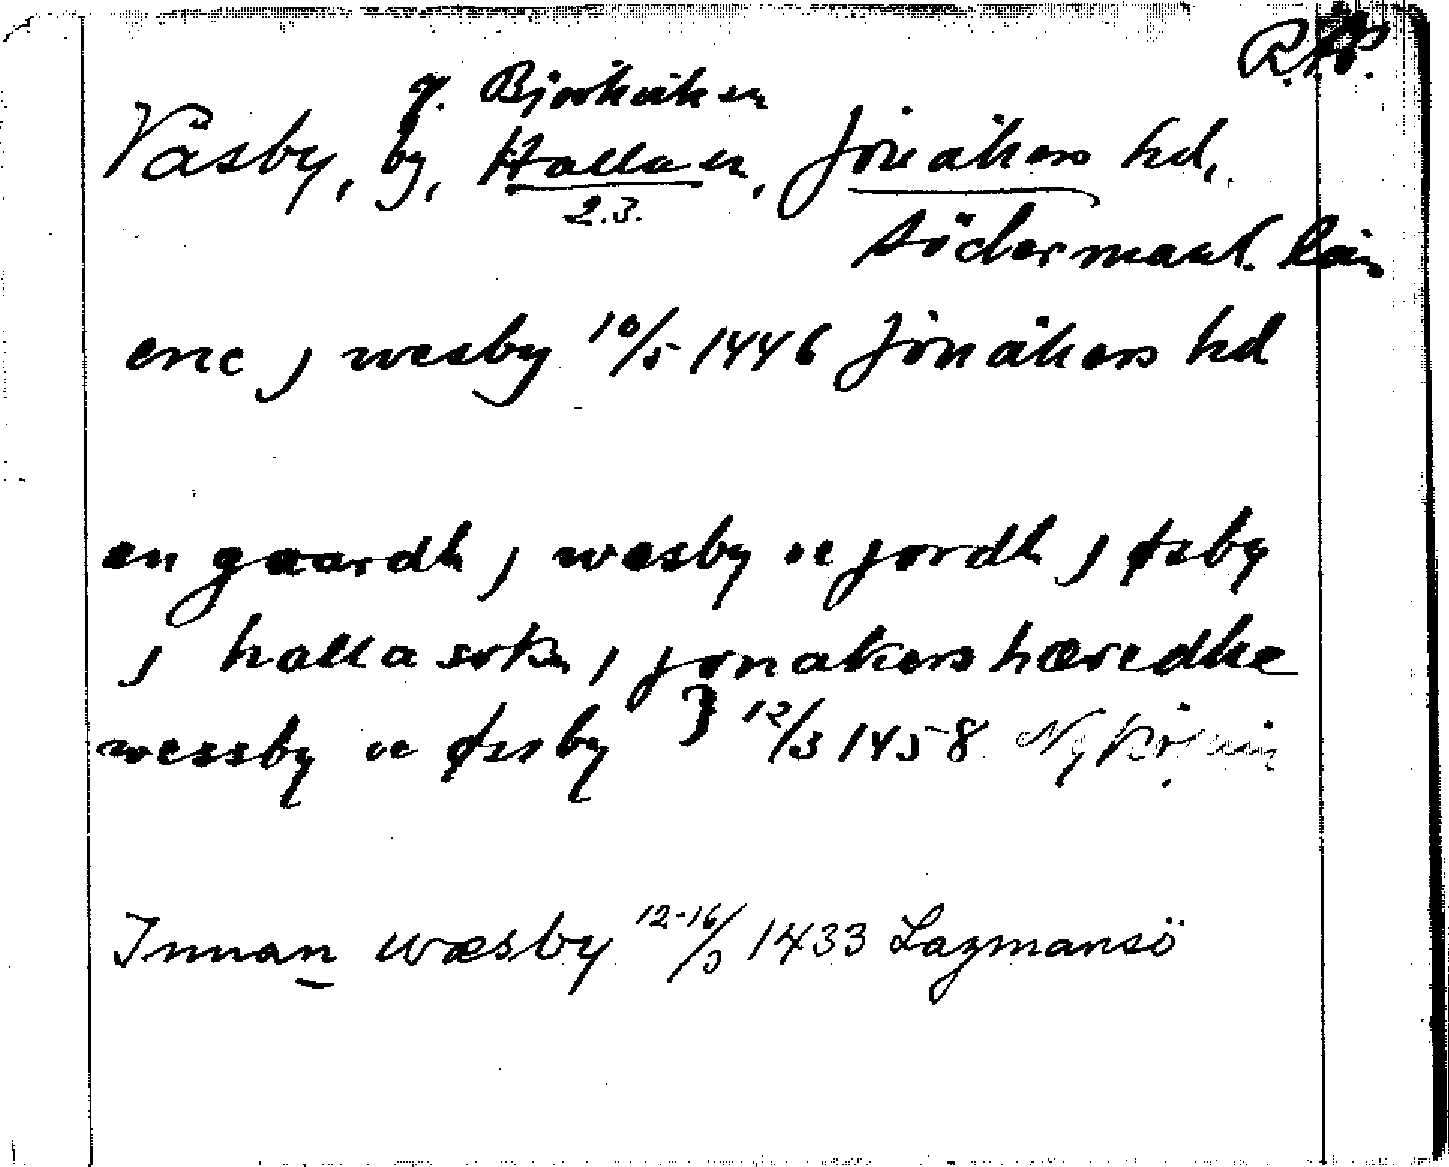 R.A.P.
g. Björkviks sn
Väsby, by, Halla sn, Jönåkers hd,
2.3.
Södermanl. län
ene j wesby 10/5 1446 Jönåkers hd
en gaardh j wæsby oc jordh j øsby
j halla sokn j jonakers hæredhe
wessby oc øssby } 12/3 1458 Nyköping
Innan wæsby 12-16/3 1433 Lagmansö